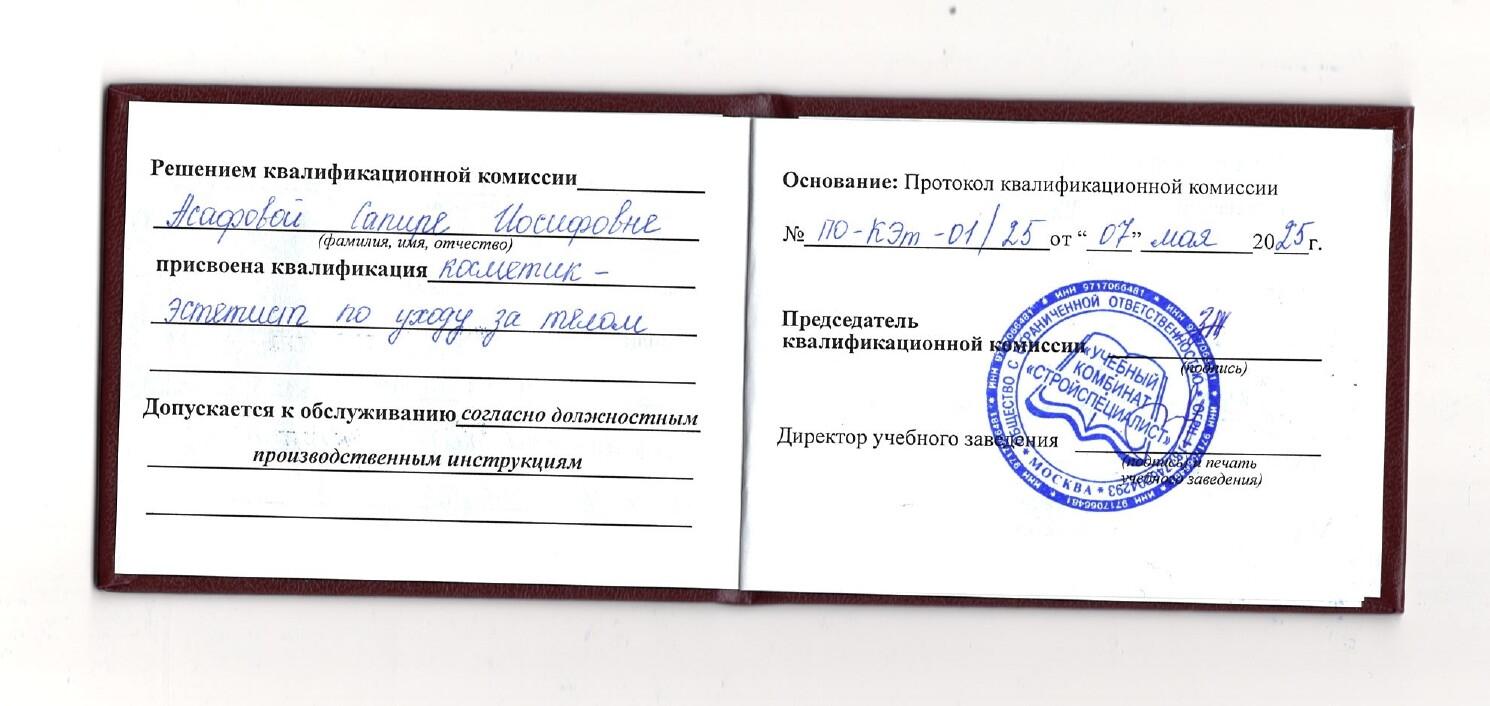 Решением квалификационной комиссии
Асафовой Сапире Иосифовне
(фамилия, имя, отчество)
присвоена квалификация косметик –
эстетист по уходу за телом
Допускается к обслуживанию согласно должностным
производственным инструкциям
Основание: Протокол квалификационной комиссии
№ ПО-КЭт-01/25 от “07” мая 2025 г.
Председатель
квалификационной комиссии
(подпись)
Директор учебного заведения
(подпись) и печать
учебного заведения)
ИНН 9717066481
ОБЩЕСТВО С ОГРАНИЧЕННОЙ ОТВЕТСТВЕННОСТЬЮ
МОСКВА
«УЧЕБНЫЙ
КОМБИНАТ
«СТРОЙСПЕЦИАЛИСТ»